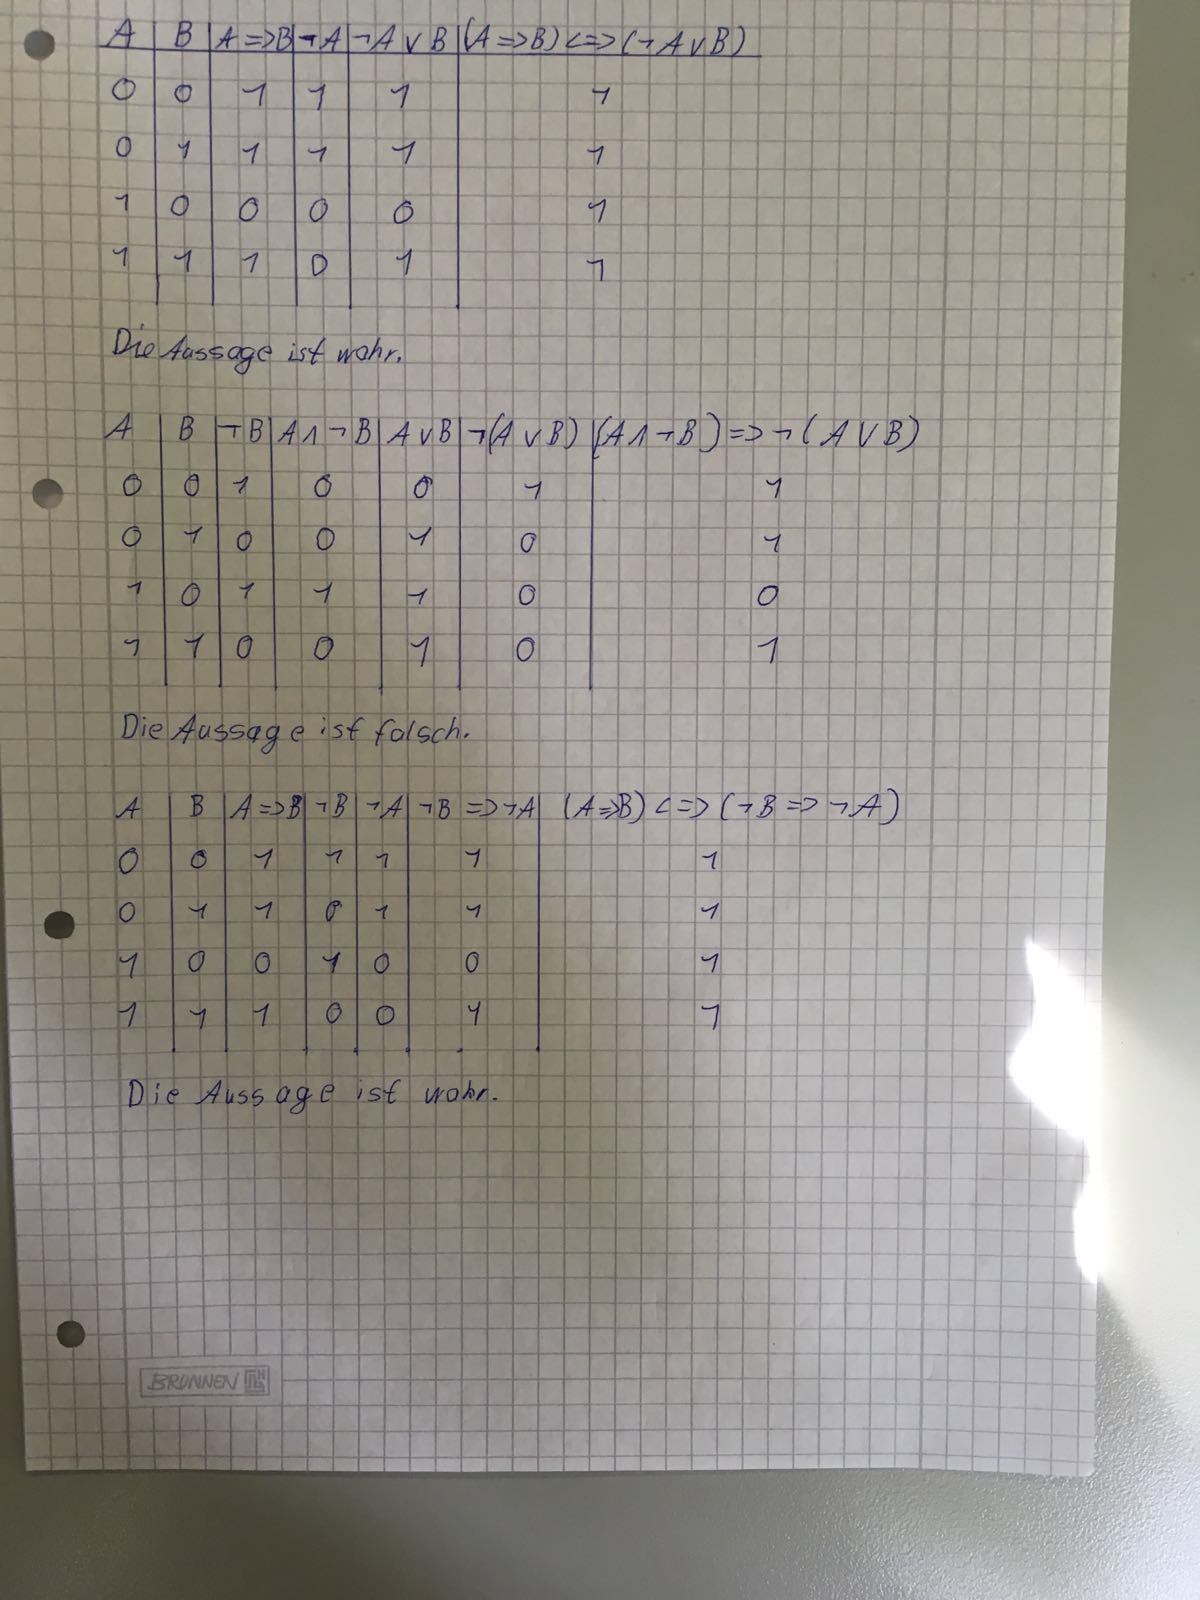 A B A => B ¬A ¬A ∨ B (A => B) <=> (¬A ∨ B)
0 0 1 1 1 1
0 1 1 1 1 1
1 0 0 0 0 1
1 1 1 0 1 1
Die Aussage ist wahr.
A B ¬B A ∧ ¬B A ∨ B ¬(A ∨ B) (A ∧ ¬B) => ¬(A ∨ B)
0 0 1 0 0 1 1
0 1 0 0 1 0 1
1 0 1 1 1 0 0
1 1 0 0 1 0 1
Die Aussage ist falsch.
A B A => B ¬B ¬A ¬B => ¬A (A => B) <=> (¬B => ¬A)
0 0 1 1 1 1 1
0 1 1 0 1 1 1
1 0 0 1 0 0 1
1 1 1 0 0 1 1
Die Aussage ist wahr.
BRUNNEN